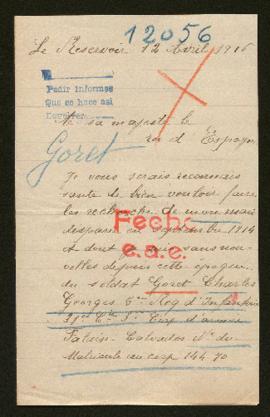 12056
Le Reservoir 12 Avril 1916
Pedir informes
Que se hace así
A sa majesté le
roi d'Espagne
Goret
Je vous serais reconnais
sante de bien vouloir faire
les recherche de mon mari
disparu en septembre 1914
et dont je suis sans nou-
velles depuis cette époque
Fecho
c.a.e.
du soldat Goret Charles
Georges 5e Reg d'Infanterie
Cie 3e Corp d'armée
Falaise Calvados No du
Matricule au corp 144 70